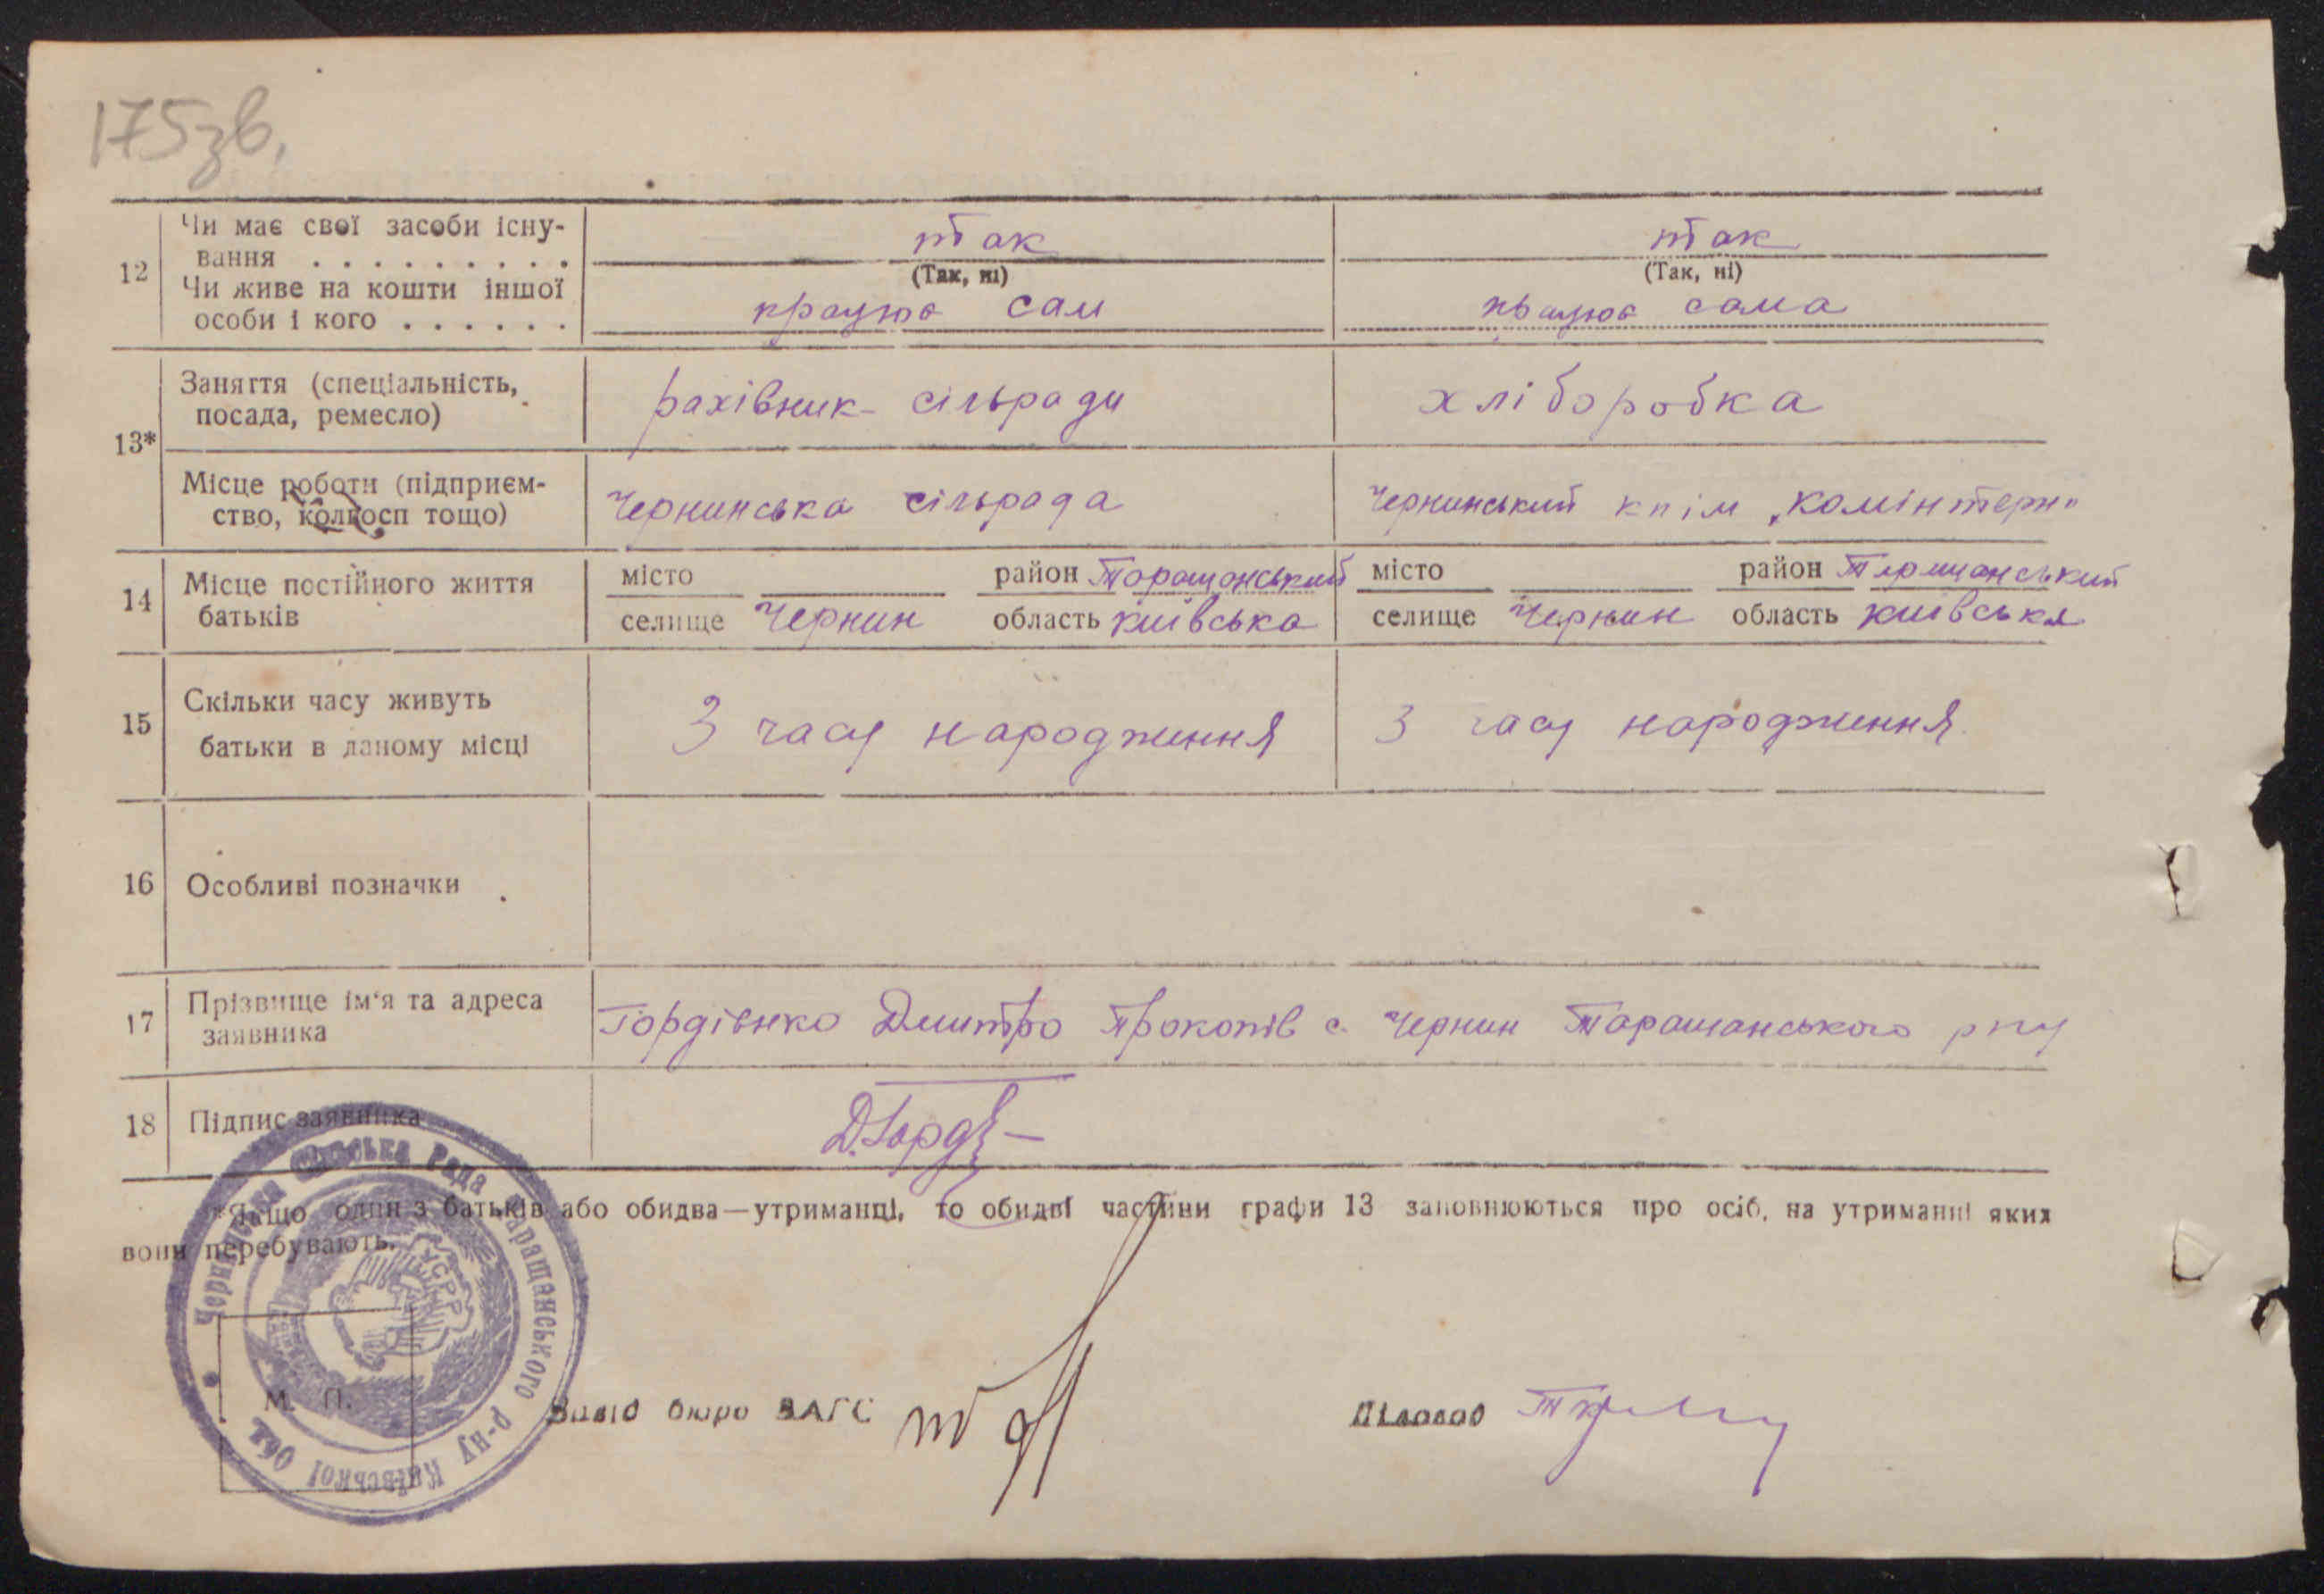 175зв.
12 Чи має свої засоби існу-
вання . . . . . . . . . так так
(Так, ні) (Так, ні)
Чи живе на кошти іншої
особи і кого . . . . . . працює сам працює сама
13* Заняття (спеціальність,
посада, ремесло) рахівник- сільради хліборобка
Місце роботи (підприєм-
ство, колгосп тощо) Чернинська сільрада Чернинський кпім „Комінтерн"
14 Місце постійного життя
батьків
місто район Таращанський місто район Таращанський
селище Чернин область Київська селище Чернин область Київська
15 Скільки часу живуть
батьки в даному місці З часу народження З часу народження
16 Особливі позначки
17 Прізвище ім'я та адреса
заявника Гордієнко Дмитро Прокопів с. Чернин Таращанського р-ну
18 Підпис заявника Д.Горд
*Якщо один з батьків або обидва—утриманці, то обидві частини графи 13 заповнюються про осіб, на утриманні яких
вони перебувають.
Чернинська Сільська Рада Таращанського р-ну Київської Обл
УСРР
М. П.
Завід бюро ЗАГС